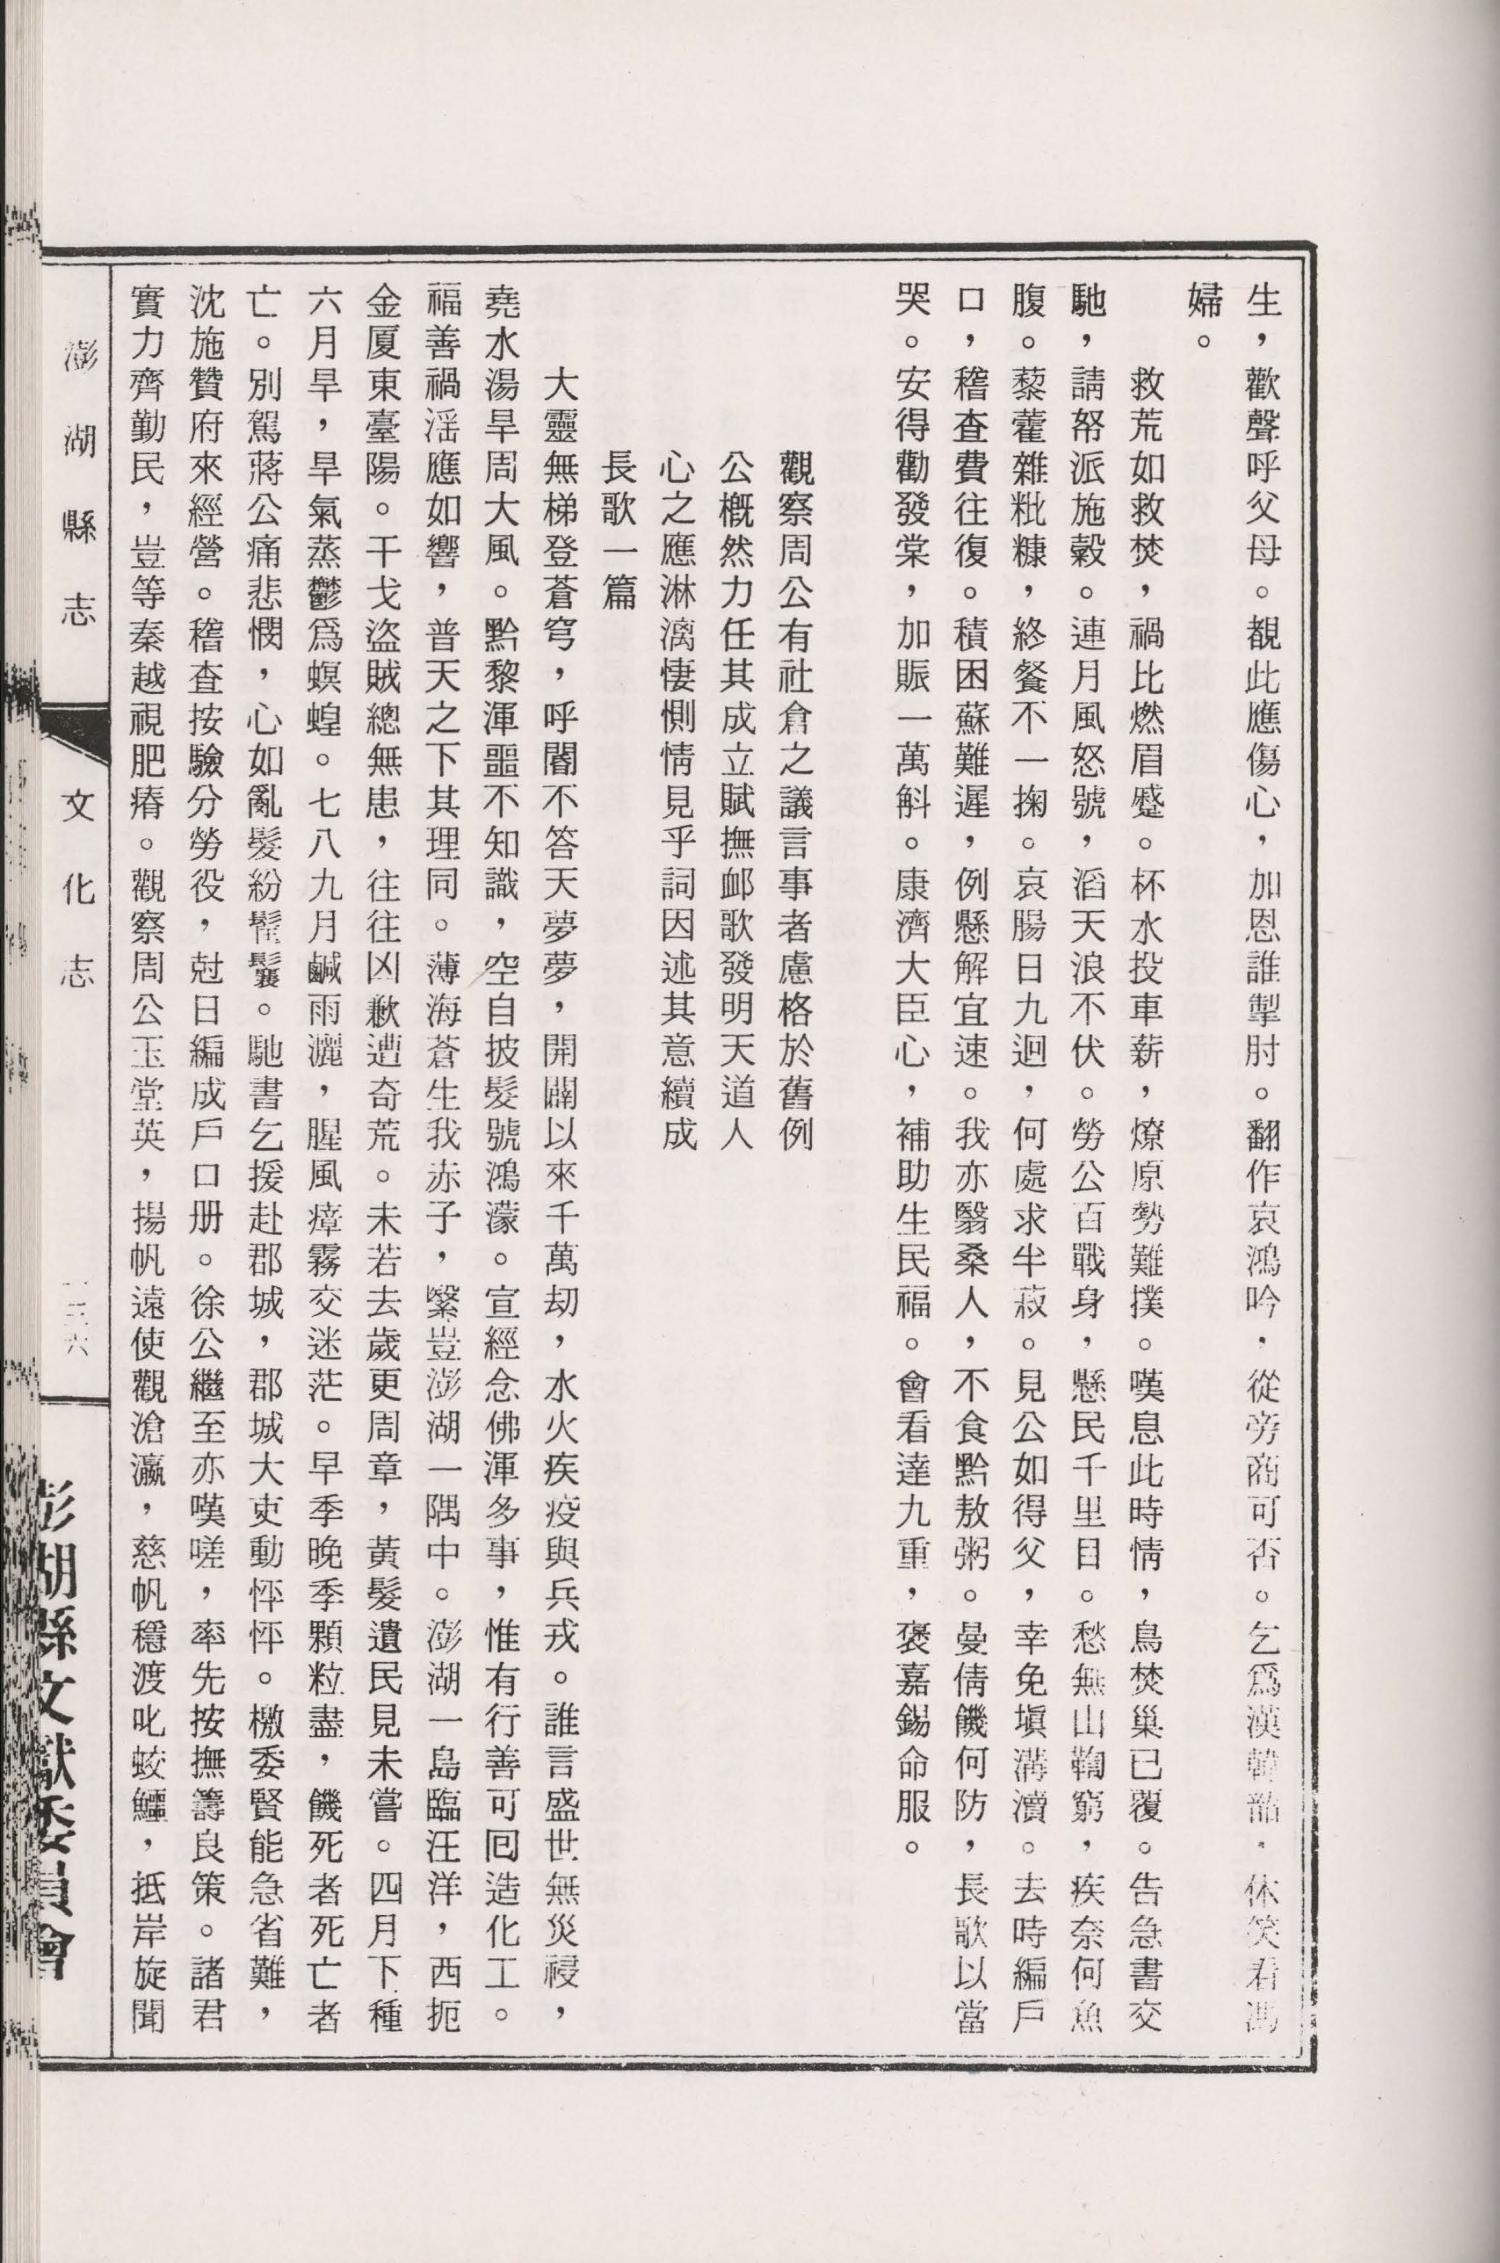 生，歡聲呼父母。覩此應傷心，加恩誰掣肘。翻作哀鴻吟，從旁商可否。乞爲漢韓韶，休笑君馮
婦。
救荒如救焚，禍比燃眉蹙。杯水投車薪，燎原勢難撲。嘆息此時情，鳥焚巢已覆。告急書交
馳，請帑派施穀。連月風怒號，滔天浪不伏。勞公百戰身，懸民千里目。愁無山鞠窮，疾奈何魚
腹。藜藿雜粃糠，終餐不一掬。哀腸日九迴，何處求半菽。見公如得父，幸免塡溝瀆。去時編戶
口，稽查費往復。積困蘇難遲，例懸解宜速。我亦翳桑人，不食黔敖粥。曼倩饑何防，長歌以當
哭。安得勸發棠，加賑一萬斛。康濟大臣心，補助生民福。會看達九重，褒嘉錫命服。
觀察周公有社倉之議言事者慮格於舊例
公概然力任其成立賦撫卹歌發明天道人
心之應淋漓悽惻情見乎詞因述其意續成
長歌一篇
大靈無梯登蒼穹，呼閽不答天夢夢，開闢以來千萬劫，水火疾疫與兵戎。誰言盛世無災祲，
堯水湯旱周大風。黔黎渾噩不知識，空自披髮號鴻濛。宣經念佛渾多事，惟有行善可囘造化工。
福善禍淫應如響，普天之下其理同。薄海蒼生我赤子，緊豈澎湖一隅中。澎湖一島臨汪洋，西扼
金厦東臺陽。干戈盜賊總無患，往往凶歉遭奇荒。未若去歲更周章，黃髮遺民見未嘗。四月下種
六月旱，旱氣蒸鬱爲螟蝗。七八九月鹹雨灑，腥風瘴霧交迷茫。早季晚季顆粒盡，饑死者死亡者
亡。別駕蔣公痛悲憫，心如亂髮紛鬅鬟。馳書乞援赴郡城，郡城大吏動怦怦。檄委賢能急省難，
沈施贊府來經營。稽查按驗分勞役，尅日編成戶口册。徐公繼至亦嘆嗟，率先按撫籌良策。諸君
實力齊勤民，豈等秦越視肥瘠。觀察周公玉堂英，揚帆遠使觀滄瀛，慈帆穩渡叱蛟鱷，抵岸旋聞
澎湖縣志
文化志
一三六
澎湖縣文獻委員會